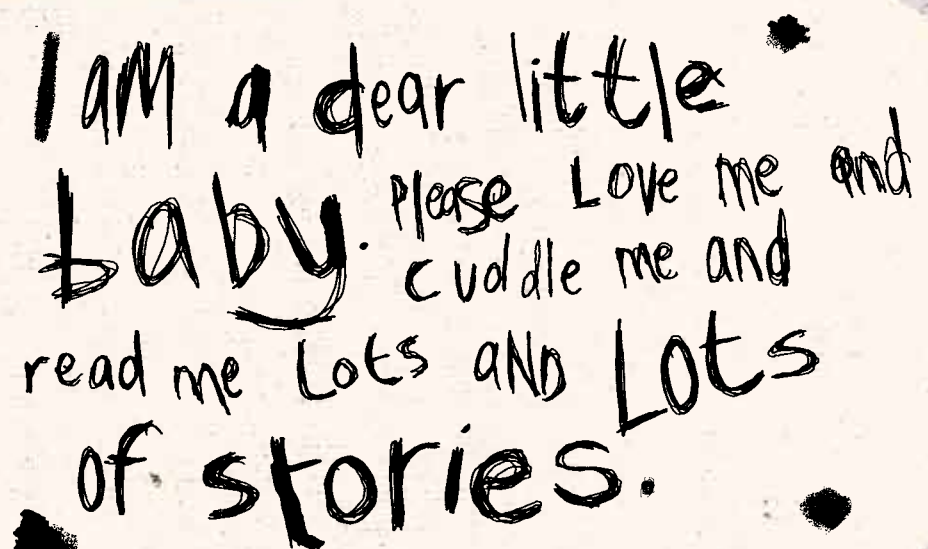 I aM a dear little
baby. Please Love me and
cuddle me and
read me Lots aND Lots
of stories.